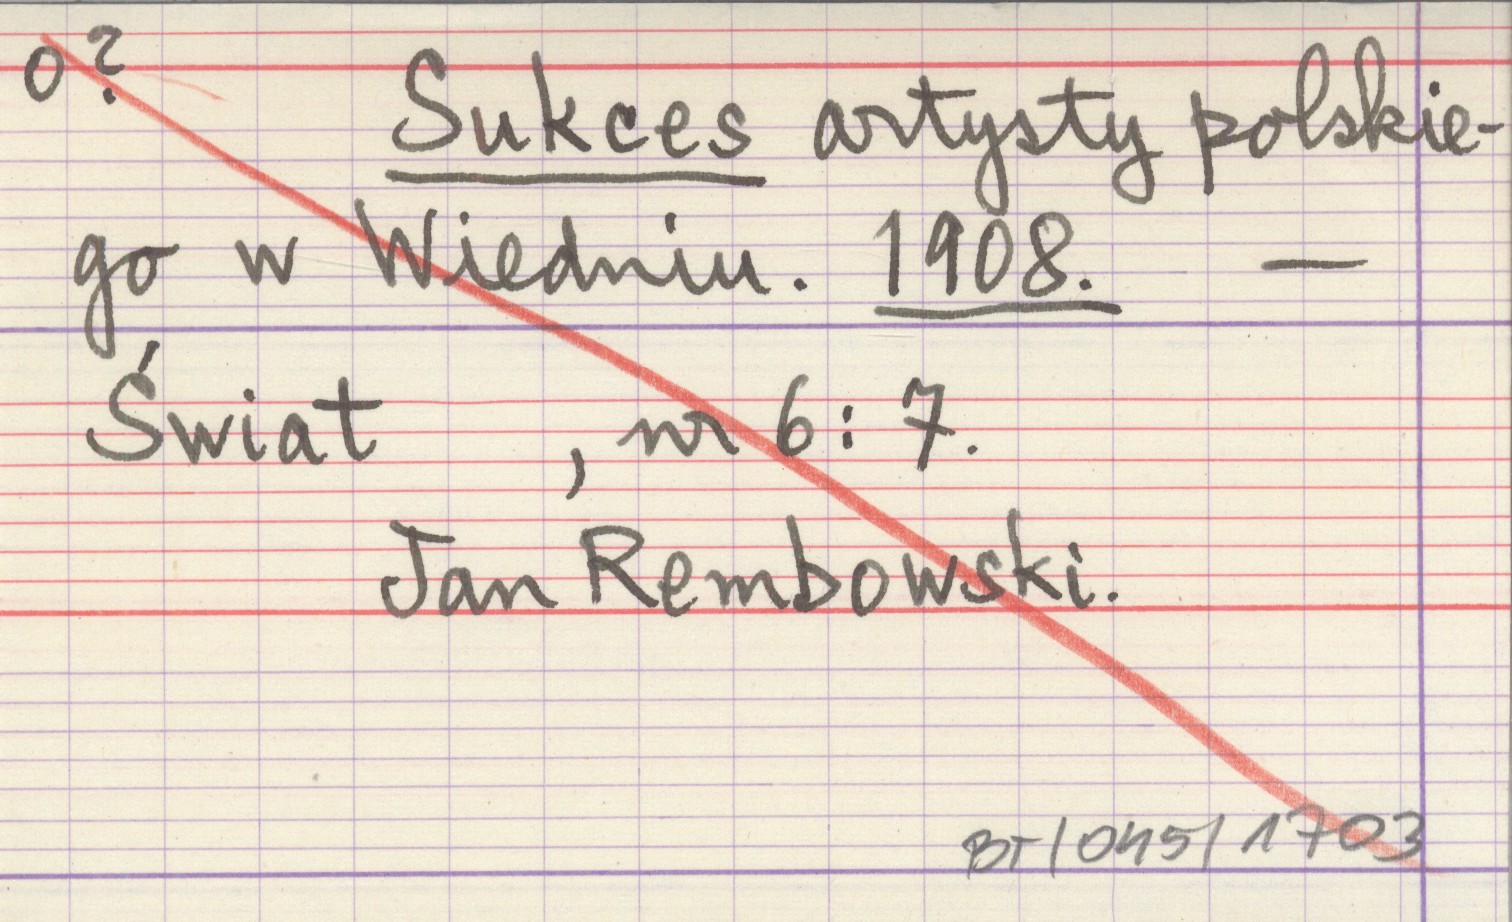 o?
Sukces artysty polskie-
go w Wiedniu. 1908. —
Świat , nr 6: 7.
Jan Rembowski.
BT/045/1703